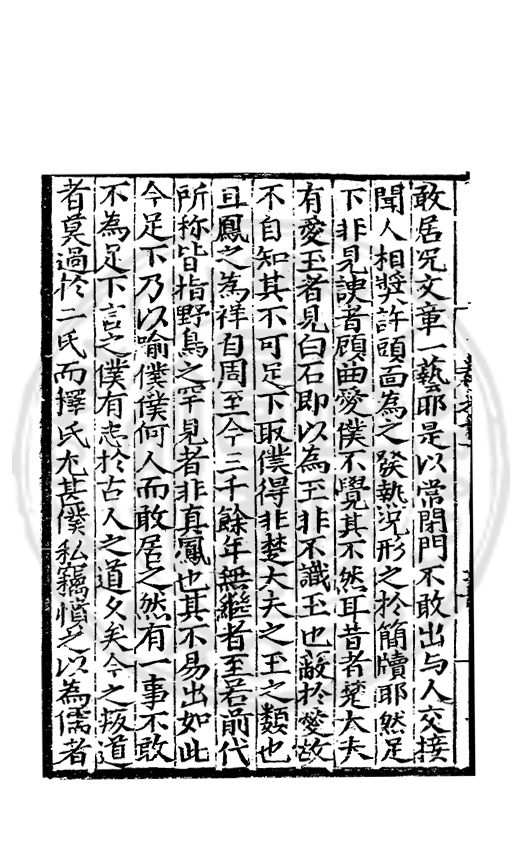 敢居况文章一藝耶是以常閉門不敢出与人交接
聞人相奬許頭面為之發熱况形之於簡牘耶然足
下非見諛者顧曲愛僕不覺其不然耳昔者楚大夫
有愛玉者見白石即以為玉非不識玉也蔽於愛故
不自知其不可足下取僕得非楚大夫之玉之類也
且鳳之為祥自周至今三千餘年無繼者至若前代
所称皆指野鳥之罕見者非真鳳也其不易出如此
今足下乃以喻僕僕何人而敢居之然有一事不敢
不為足下言之僕有志於古人之道久矣今之叛道
者莫過於二氏而釋氏尤甚僕私竊憤之以為儒者